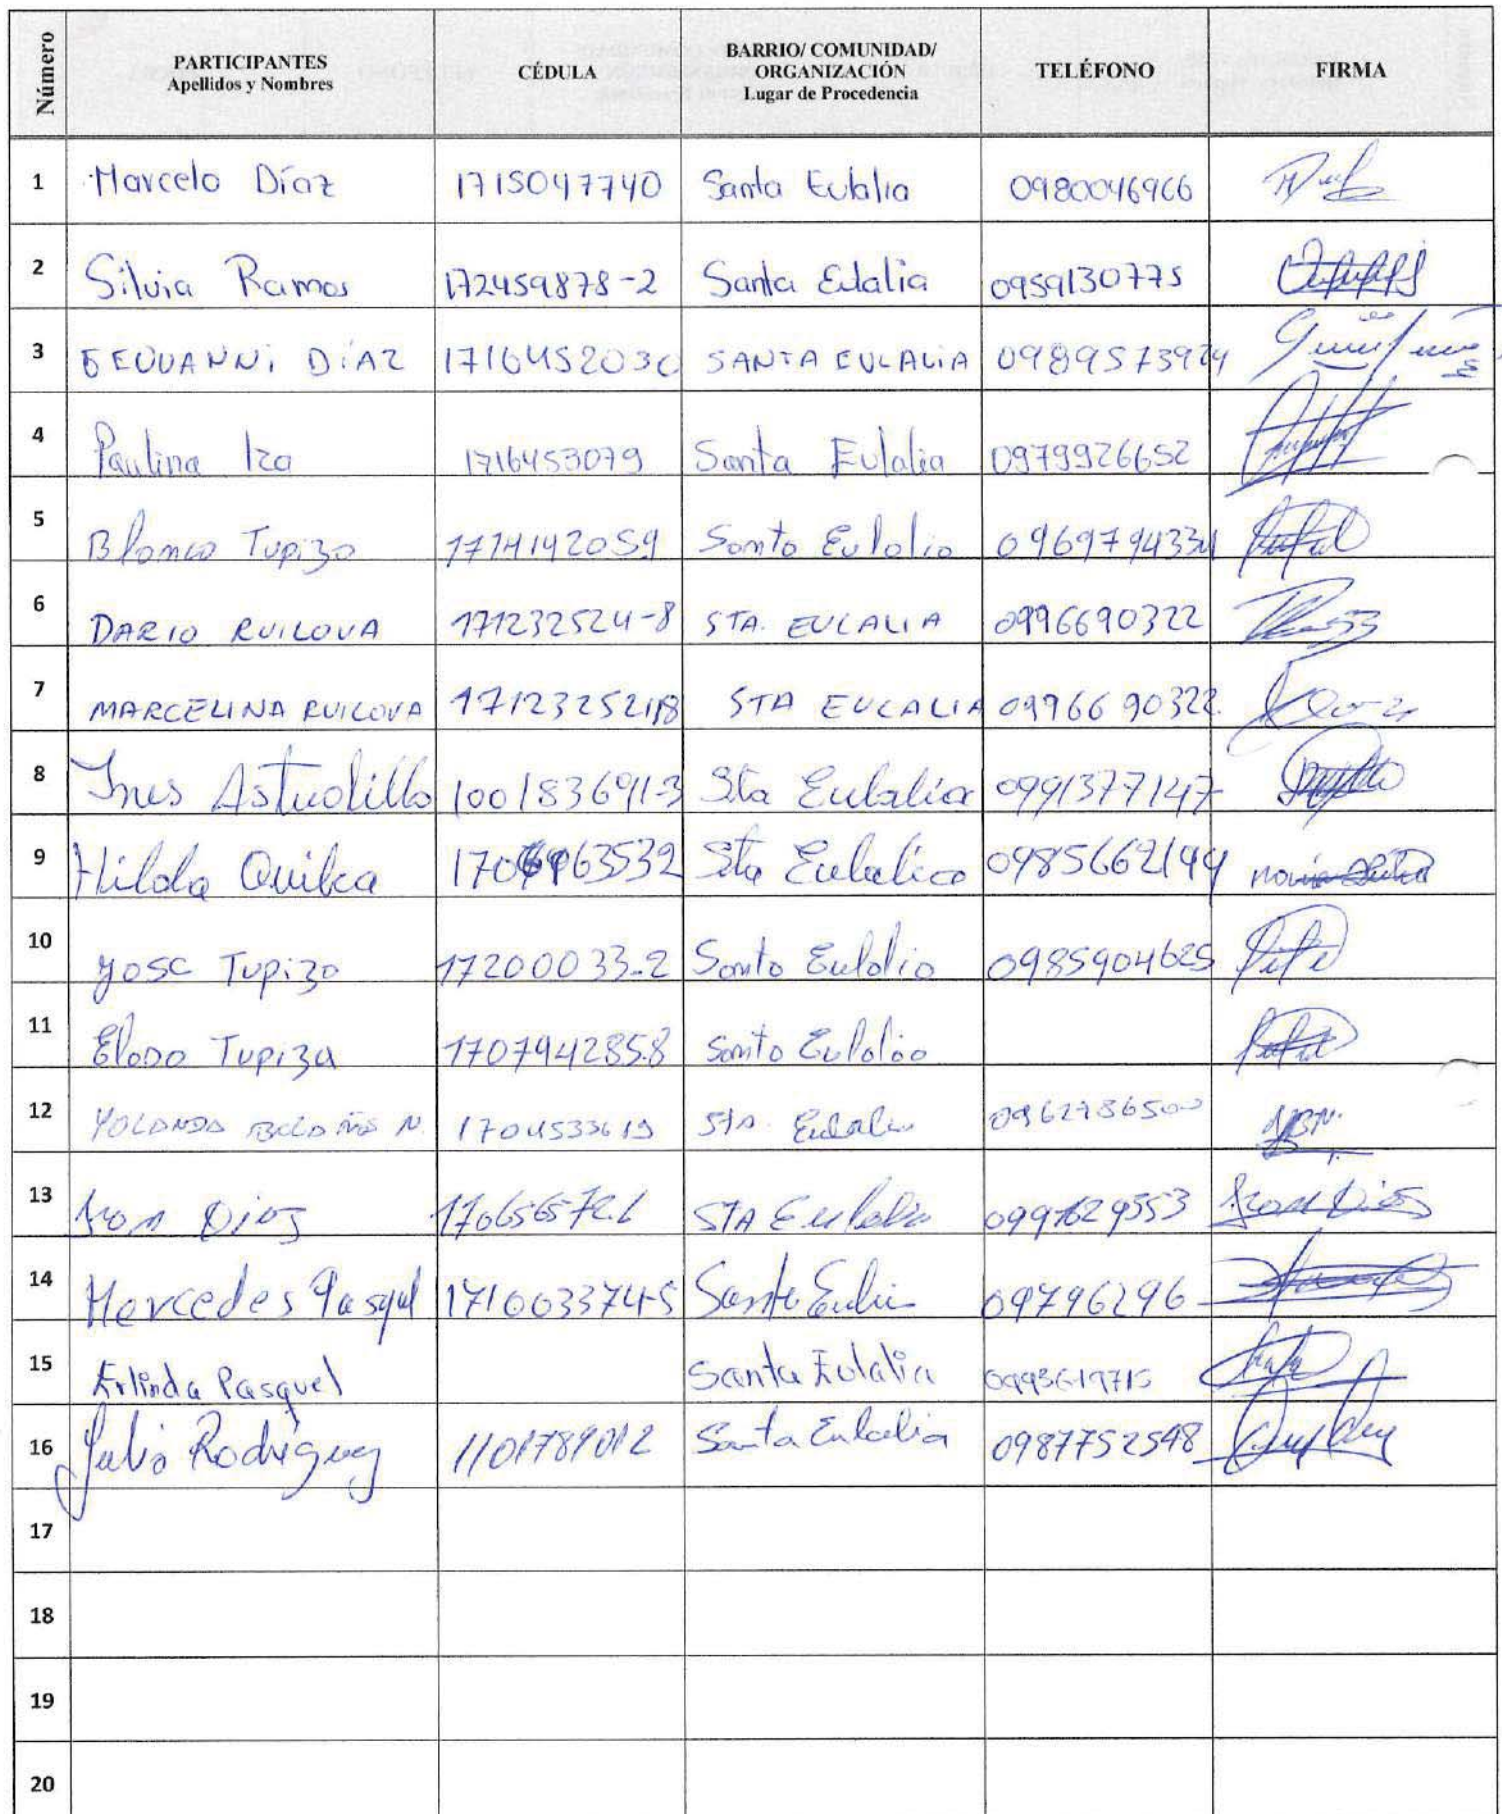 Número
PARTICIPANTES
Apellidos y Nombres
CÉDULA
BARRIO/ COMUNIDAD/
ORGANIZACIÓN
Lugar de Procedencia
TELÉFONO
FIRMA
1 Marcelo Díaz 1715047740 Santa Eulalia 0980046966
2 Silvia Ramos 172459878-2 Santa Eulalia 0959130775
3 GEOVANNI DíAZ 1716452030 SANTA EULALIA
4 Paulina Iza 1716453079 Santa Eulalia 0979926652
5 Blanca Tupiza 1714142059 Santa Eulalia
6 DARIO RUILOVA 171232524-8 STA. EULALIA 0996690322
7 MARCELINA RUILOVA STA EULALIA 0996690322
8 Ines Astudillo 100183691-3 Sta Eulalia 0991377147
9 Hilda Quilca Sta Eulalia 0985662144
10 Jose Tupiza 17200033-2 Santa Eulalia 0985904625
11 Tupiza 170794285.8 Santa Eulalia
12 YOLANDA BOLAÑOS N. 1704533619 STA. Eulalia
13 STA Eulalia
14 Mercedes Pasquel 171003374-5 Santa 09796296
15 Erlinda Pasquel Santa Eulalia
16 Julio Rodríguez Santa Eulalia 0987752548
17
18
19
20